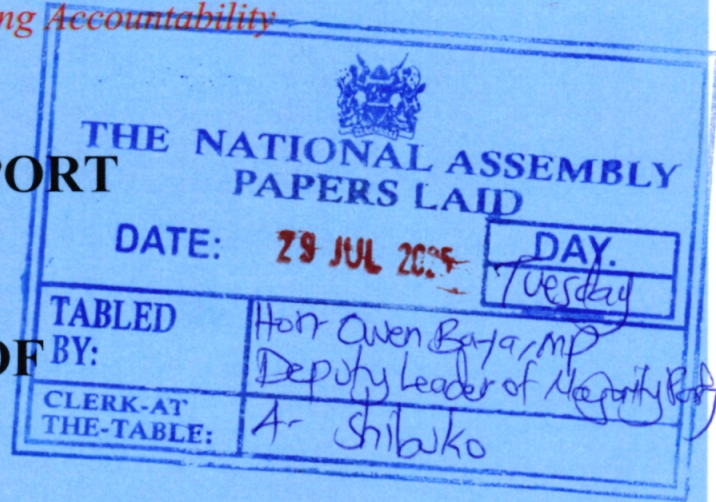 ng Accountability
THE NATIONAL ASSEMBLY
PORT
PAPERS LAID
DATE: 29 JUL 2025
DAY.
Tuesday
TABLED BY:
Hon Owen Baya, MP
Deputy Leader of Majority Party
OF
CLERK-AT THE-TABLE:
A. Shibuko